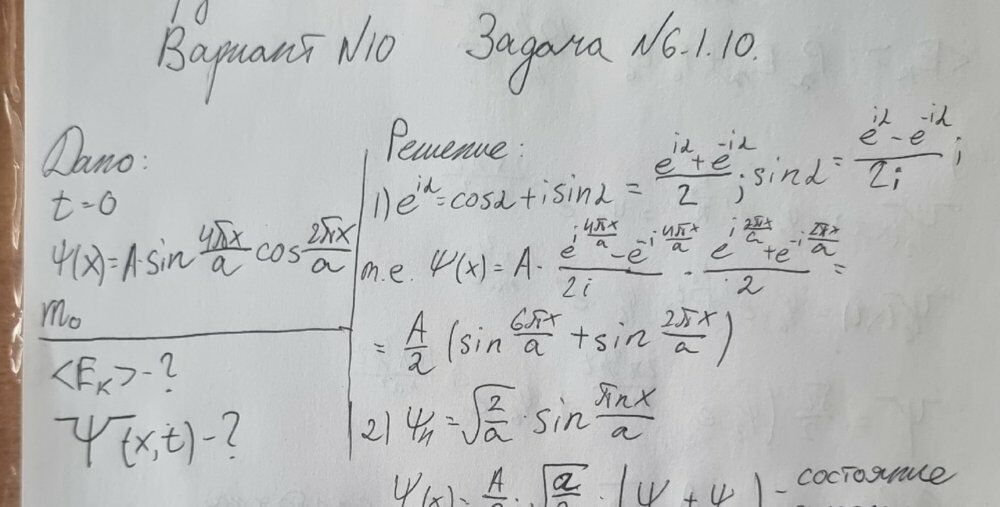 Вариант №10 Задача №6.1.10.
Дано:
t=0
Ψ(x)=A·sin 4πx/a cos 2πx/a
m₀
<Eₖ>-?
Ψ(x,t)-?
Решение:
1) e^{iα}=cosα+isinα = (e^{iα}+e^{-iα})/2; sinα = (e^{iα}-e^{-iα})/2i;
т.е. Ψ(x)=A· (e^{i 4πx/a}-e^{-i 4πx/a})/2i · (e^{i 2πx/a}+e^{-i 2πx/a})/2 =
= A/2 (sin 6πx/a + sin 2πx/a)
2) Ψₙ=√(2/a)·sin πnx/a
Ψ(x)= A/2 · √(a/2) · (Ψ + Ψ ) - состояние